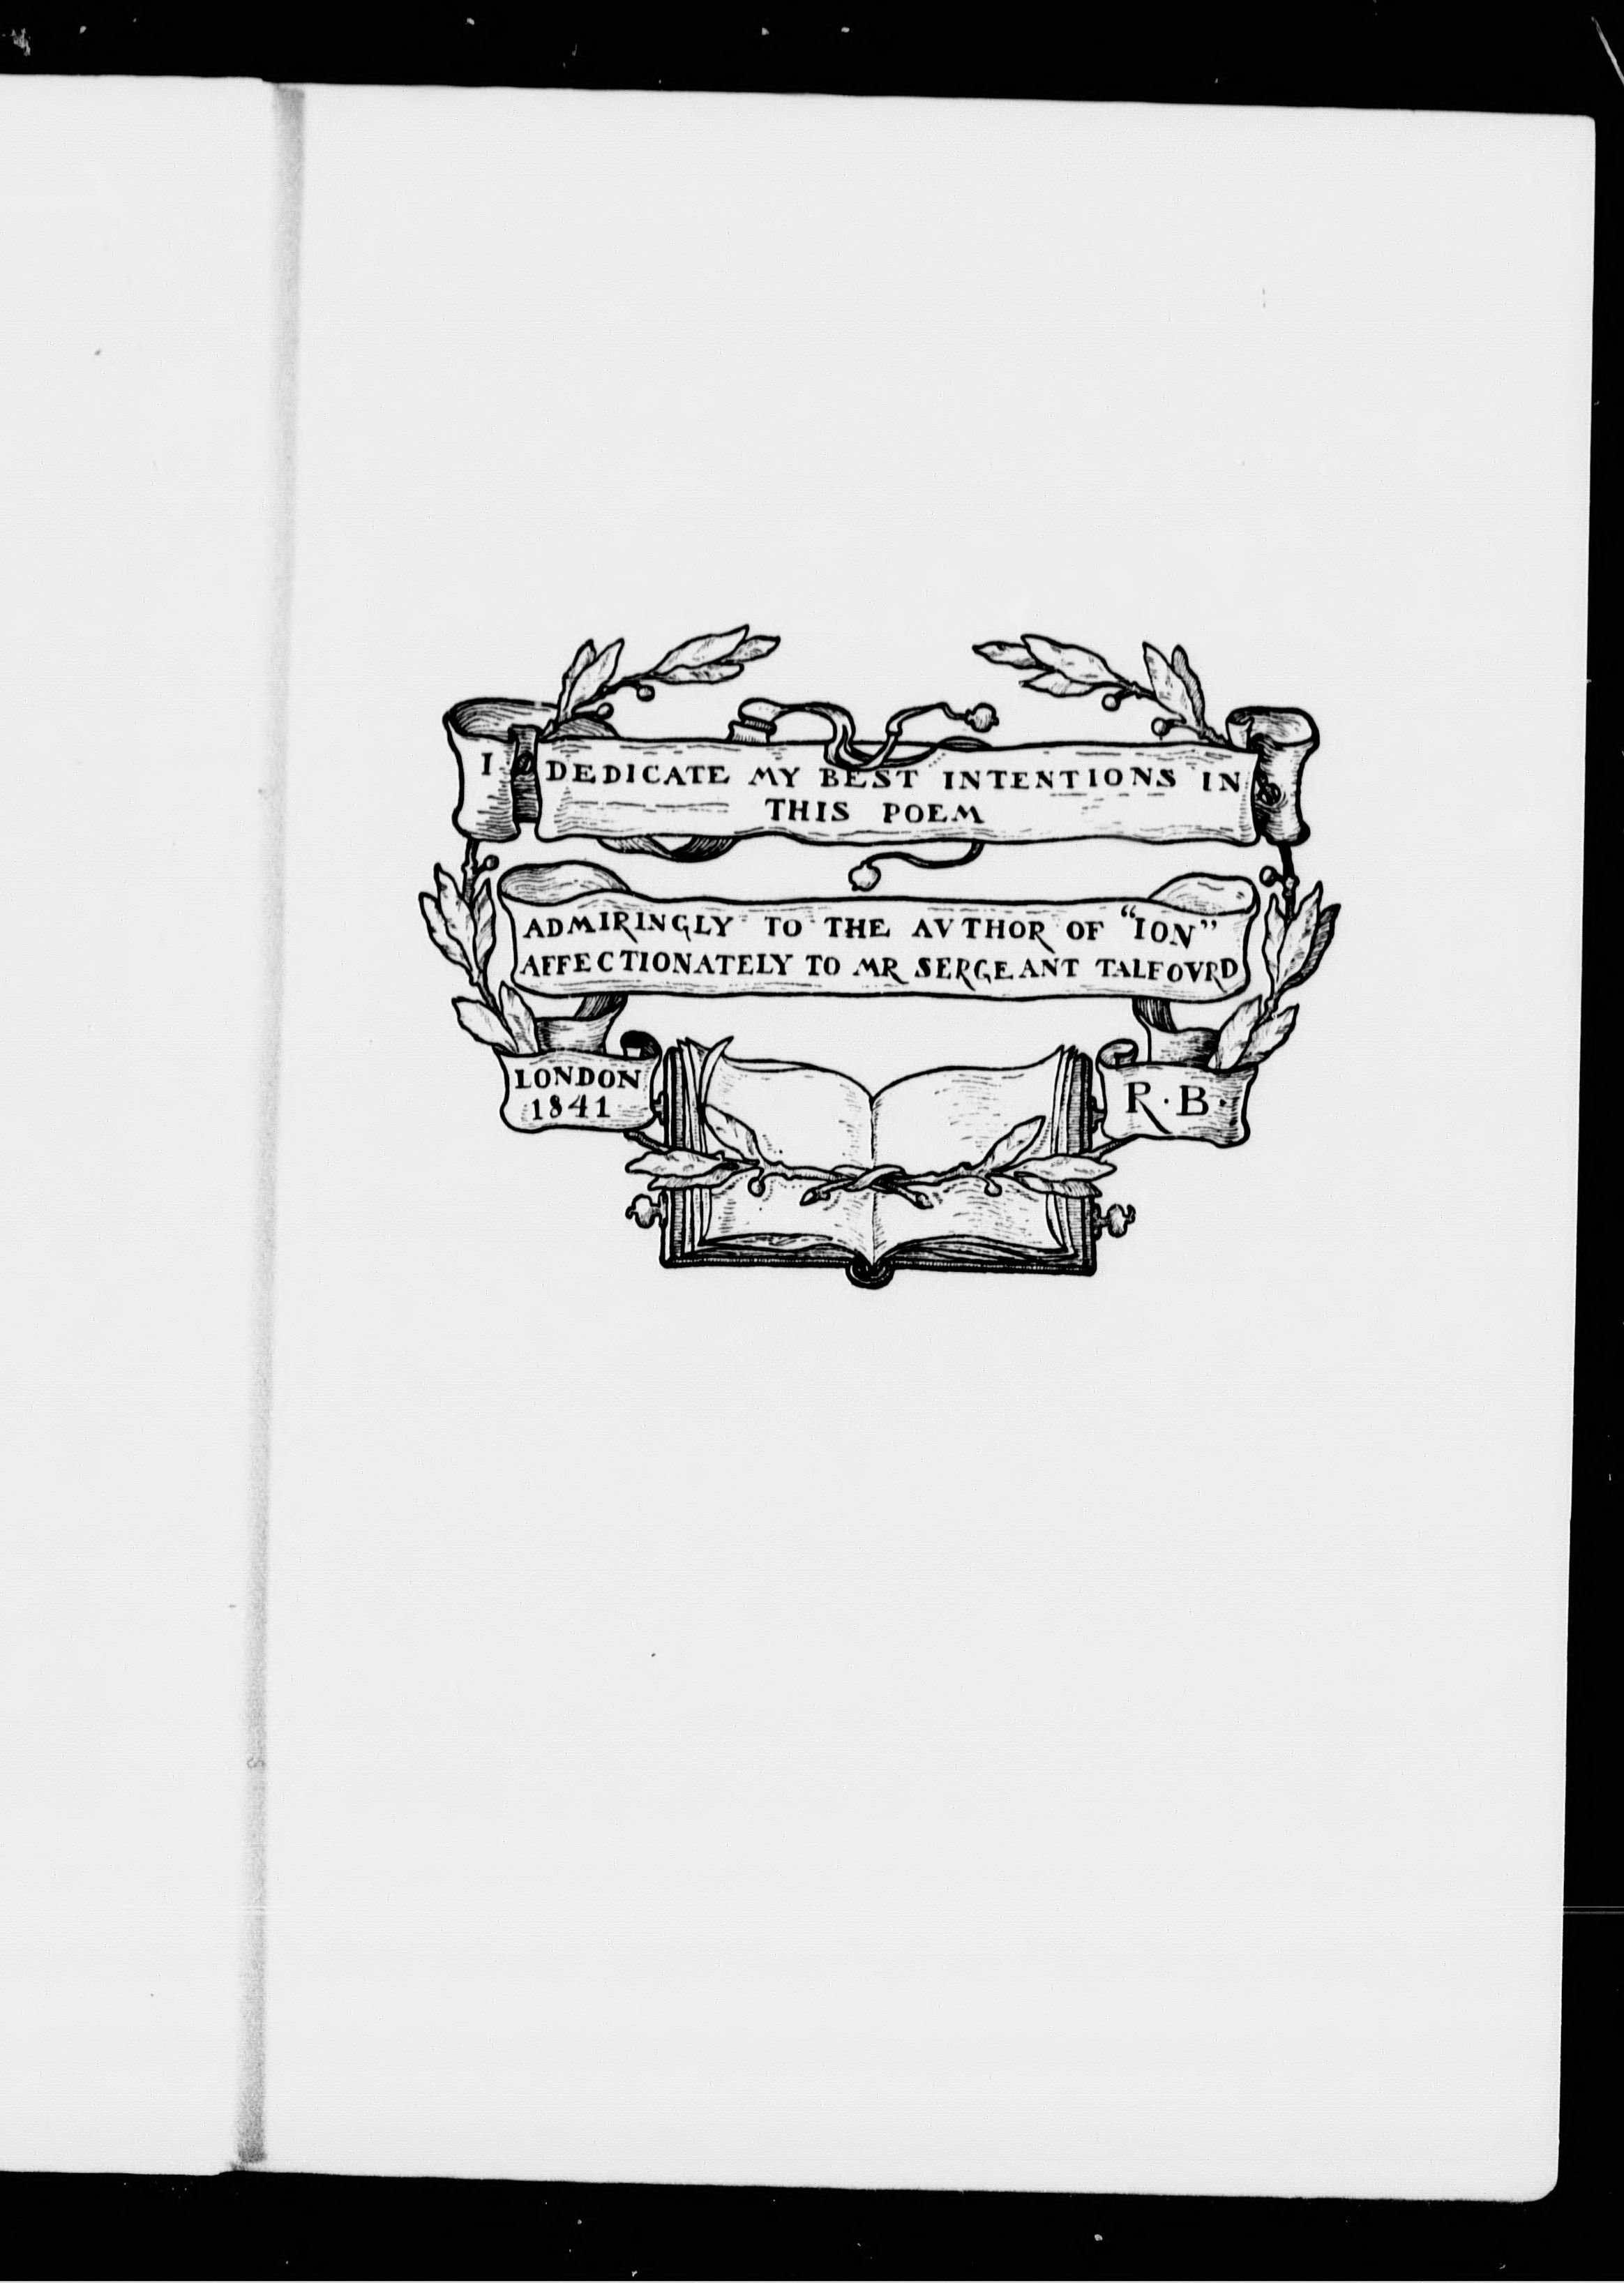 I DEDICATE MY BEST INTENTIONS IN
THIS POEM
ADMIRINGLY TO THE AVTHOR OF “ION”
AFFECTIONATELY TO MR SERGEANT TALFOVRD
LONDON
1841
R·B·